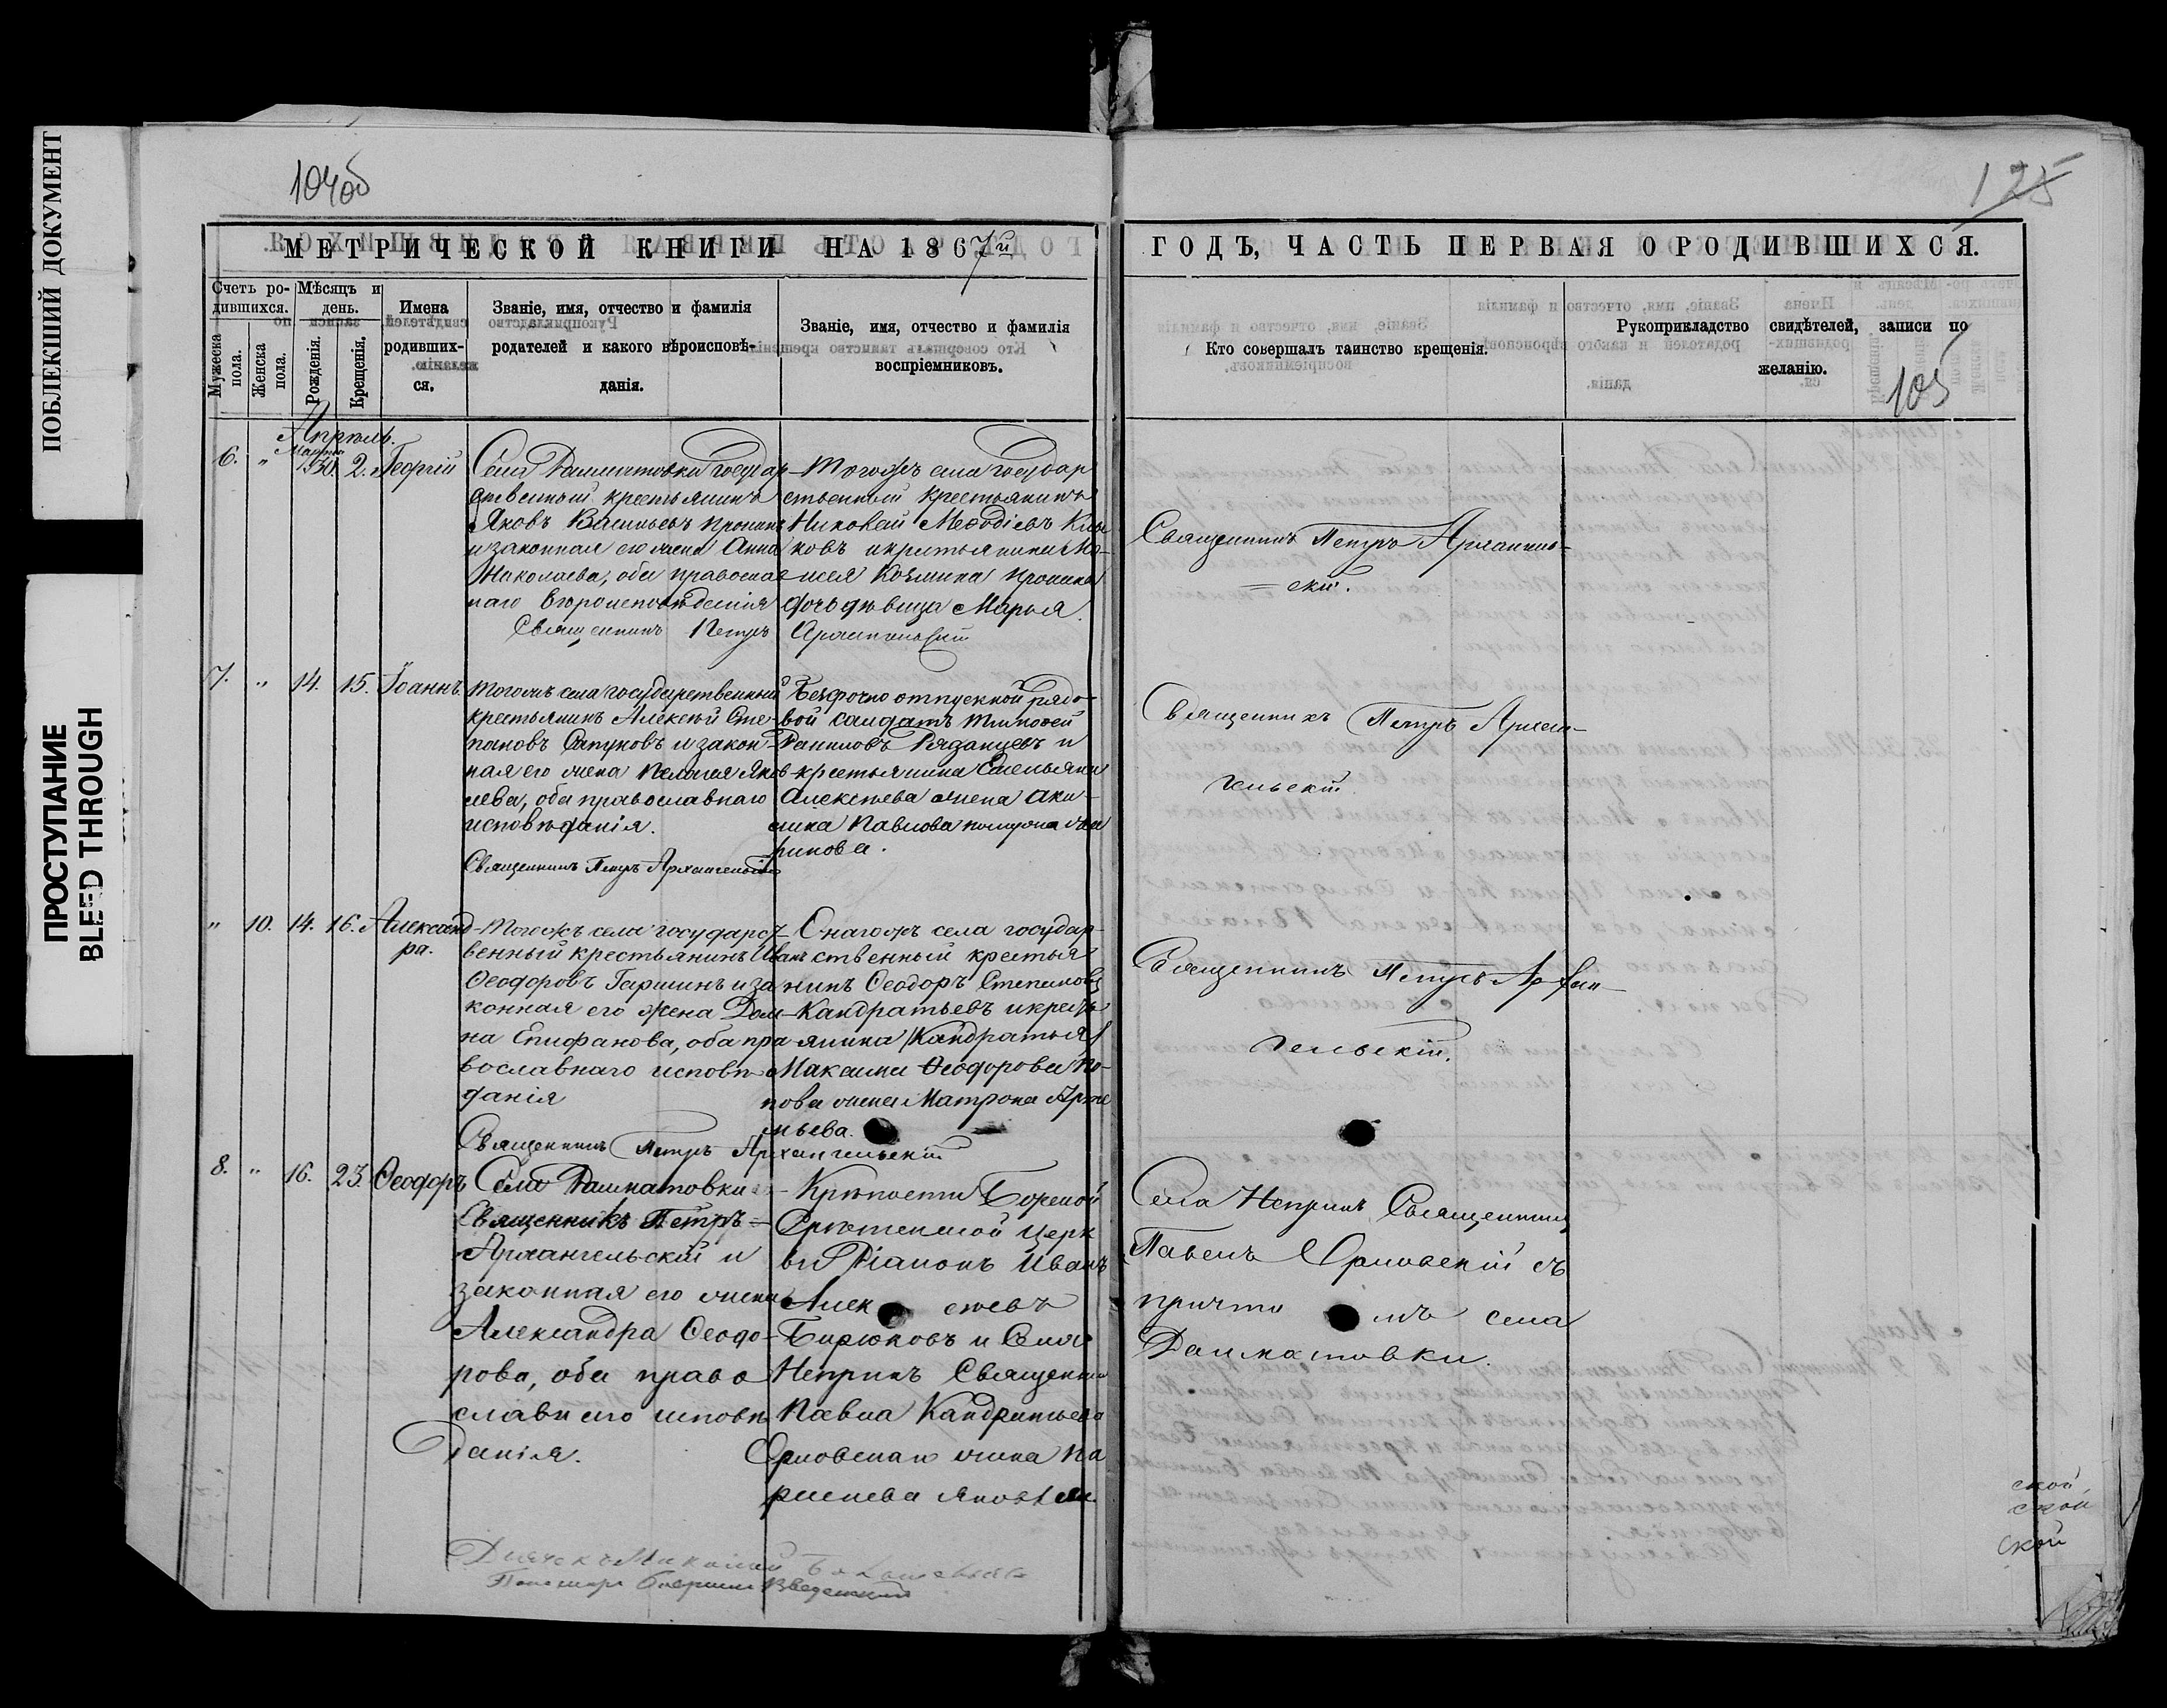 ПОБЛЕКШИЙ ДОКУМЕНТ
ПРОСТУПАНИЕ
BLEED THROUGH
104об
125
МЕТРИЧЕСКОЙ КНИГИ НА 1867й
ГОДЪ, ЧАСТЬ ПЕРВАЯ О РОДИВШИХСЯ.
Счетъ ро-
дившихся.
Мужеска
пола.
Женска
пола.
Мѣсяцъ и
день.
Рожденія.
Крещенія.
Имена
родивших-
ся.
Званіе, имя, отчество и фамилія
родителей и какого вѣроисповѣ-
данія.
Званіе, имя, отчество и фамилія
воспріемниковъ.
Кто совершалъ таинство крещенія.
Рукоприкладство свидѣтелей, записи по
желанію.
105
Апрѣль.
Марта
6. " 30. 2. Георгій
Села Далматовки государ
ственный крестьянинъ
Яковъ Васильевъ Пронинъ
и законная его жена Анна
Николаева, оба православ
наго вѣроисповѣданія
Тогожъ села государ
ственный крестьянинъ
Николай Меѳодіевъ
ковъ и крестьянина
Козмина Пронина
дочь дѣвица Марья.
Священникъ Петръ Архангельскій
Священникъ Петръ Архангель-
=скій.
7. " 14. 15. Іоаннъ.
Тогожъ села государственный
крестьянинъ Алексѣй Сте-
пановъ Сапуновъ и закон-
ная его жена Пелагея Яков
лева, оба православнаго
исповѣданія.
Безсрочно отпускной рядо-
вой солдатъ Тимоѳей
Даниловъ Рязанцевъ и
крестьянина Емельяна
Алексѣева жена Аку-
лина Павлова
Священникъ Петръ Архангельскій
Священникъ Петръ Архан-
гельскій
" 10. 14. 16. Александ
ра.
Тогожъ села государст
венный крестьянинъ Иванъ
Ѳеодоровъ Гаршинъ и за
конная его жена Дом-
на Епифанова, оба пра
вославнаго исповѣ-
данія
Онагожъ села государ
ственный крестья
нинъ Ѳеодоръ Степановъ
Кандратьевъ и кресть
янина Кандратья
Максима Ѳеодорова По-
пова жена Матрона Арте
мьева.
Священникъ Петръ Архангельскій
Священникъ Петръ Архан-
гельскій.
8. " 16. 23. Ѳеодоръ
Села Далматовки
Священникъ Петръ=
Архангельскій и
законная его жена
Александра Ѳеодо-
рова, оба право
славнаго исповѣ
данія.
Крѣпости Грозной
Срѣтенской церк
ви Діаконъ Иванъ
Алексѣевъ
Бирюковъ и Села
Священни
Павла Кандратьева
Орловскаго жена Па
Яковлева.
Села Священникъ
Павелъ Орловскій съ
причтомъ села
Далматовки.
Дьячекъ Николай
Пономарь Введенскій
ской
ской
ской